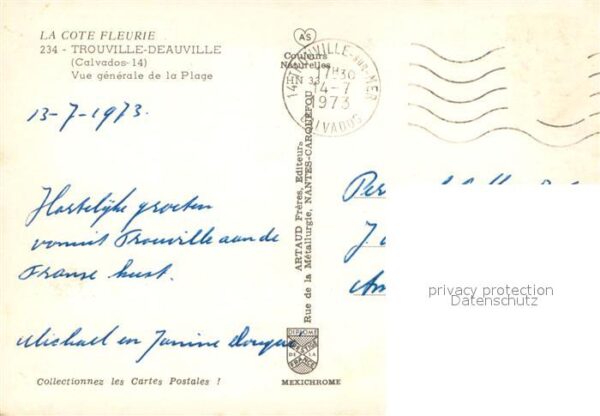 LA COTE FLEURIE
234 - TROUVILLE-DEAUVILLE
(Calvados-14)
Vue générale de la Plage
13-7-1973.
Hartelijke groeten
vanuit Trouville aan de
Franse kust.
Michael en Janine
Collectionnez les Cartes Postales !
AS
Couleurs
Naturelles
HN
14 TROUVILLE-SUR-MER
17H30
14-7
1973
CALVADOS
ARTAUD Frères, Editeurs
Rue de la Métallurgie, NANTES-CARQUEFOU
DE LA
FRANCE
MEXICHROME
J.
privacy protection
Datenschutz